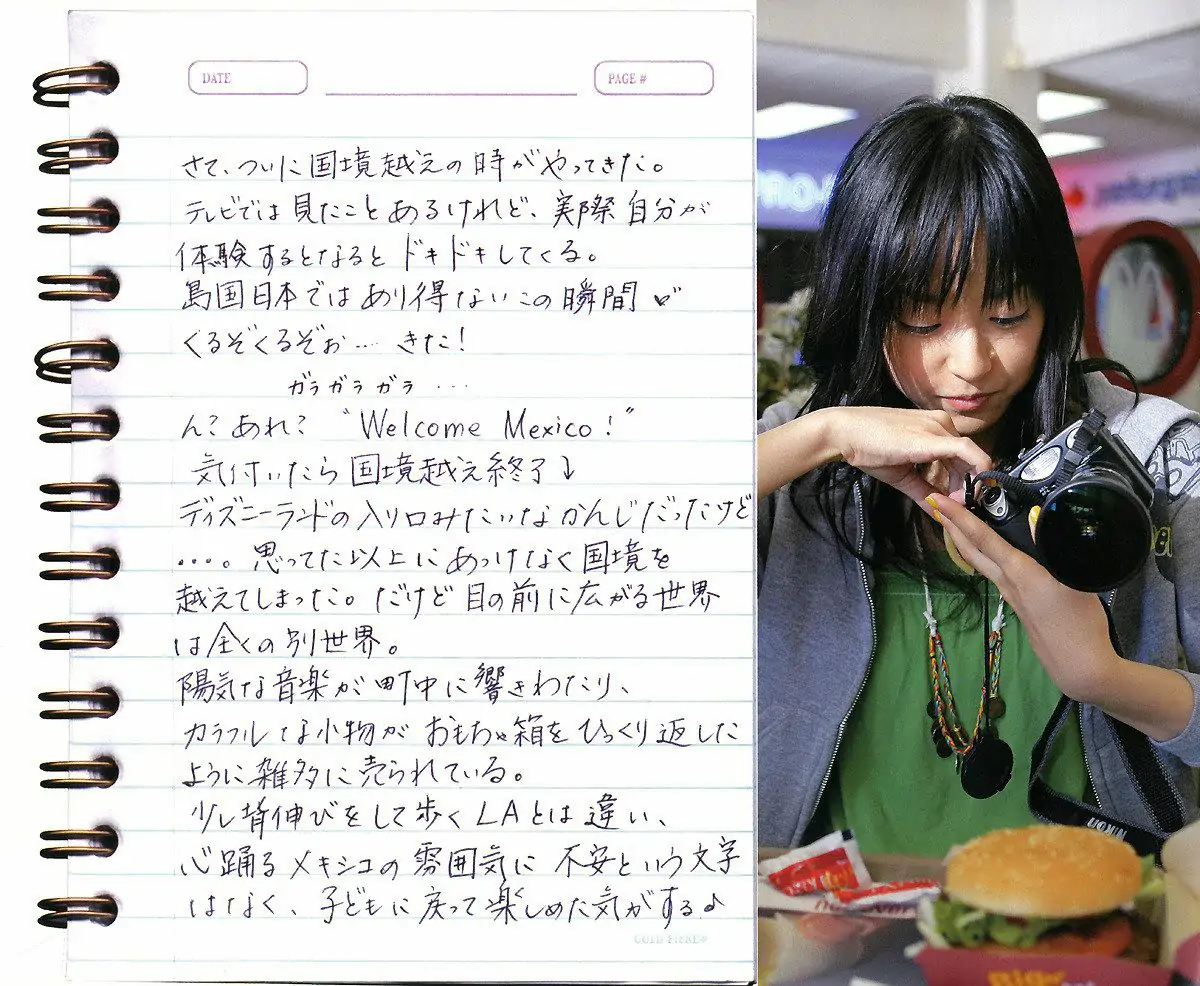 DATE
PAGE #
さて、ついに国境越えの時がやってきた。
テレビでは見たことあるけれど、実際自分が
体験するとなるとドキドキしてくる。
島国日本ではあり得ないこの瞬間
くるぞくるぞぉ… きた！
ガラガラガラ …
ん？あれ？ “Welcome Mexico！”
気付いたら国境越え終了↓
ディズニーランドの入り口みたいなかんじだったけど
…。思ってた以上にあっけなく国境を
越えてしまった。だけど目の前に広がる世界
は全くの別世界。
陽気な音楽が町中に響きわたり、
カラフルな小物がおもちゃ箱をひっくり返した
ように雑多に売られている。
少し背伸びをして歩くLAとは違い、
心踊るメキシコの雰囲気に不安という文字
はなく、子どもに戻って楽しめた気がする♪
GOLD FIBRE®
Nikon